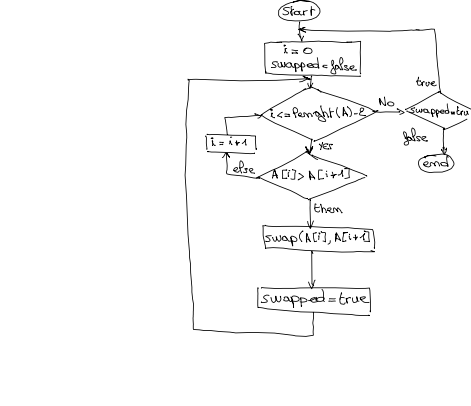 Start
i = 0
swapped = false
i <= lenght(A)-2
No
swapped=tru
true
false
end
yes
i = i+1
else
A[i] > A[i+1]
then
swap(A[i], A[i+1]
swapped = true